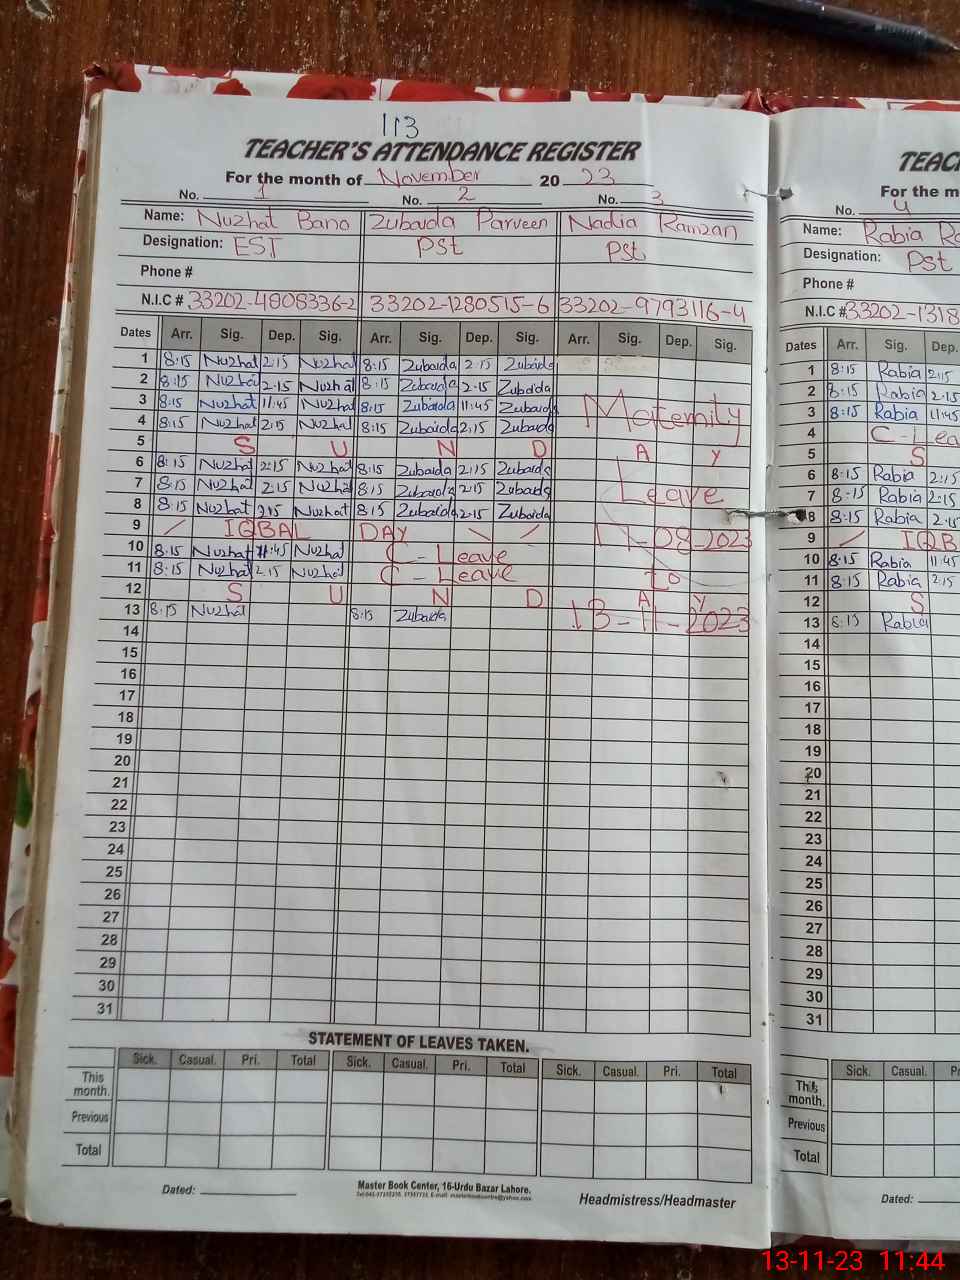 113
TEACHER'S ATTENDANCE REGISTER
For the month of November 20 23
No. 1 No. 2 No. 3
Name: Nuzhat Bano Zubaida Parveen Nadia Ramzan
Designation: EST Pst Pst
Phone #
N.I.C # 33202-4808336-2 33202-1280515-6 33202-9793116-4
Dates Arr. Sig. Dep. Sig. Arr. Sig. Dep. Sig. Arr. Sig. Dep. Sig.
1 8:15 Nuzhat 2:15 Nuzhat 8:15 Zubaida 2:15 Zubaida
2 8:15 Nuzhat 2:15 Nuzhat 8:15 Zubaida 2:15 Zubaida
3 8:15 Nuzhat 11:45 Nuzhat 8:15 Zubaida 11:45 Zubaida Maternity
4 8:15 Nuzhat 2:15 Nuzhat 8:15 Zubaida 2:15 Zubaida
5 S U N D A Y
6 8:15 Nuzhat 2:15 Nuzhat 8:15 Zubaida 2:15 Zubaida
7 8:15 Nuzhat 2:15 Nuzhat 8:15 Zubaida 2:15 Zubaida Leave
8 8:15 Nuzhat 2:15 Nuzhat 8:15 Zubaida 2:15 Zubaida
9 IQBAL DAY -08-2023
10 8:15 Nuzhat 11:45 Nuzhat C - Leave
11 8:15 Nuzhat 2:15 Nuzhat C - Leave to
12 S U N D A Y
13 8:15 Nuzhat 8:15 Zubaida 13-11-2023
14
15
16
17
18
19
20
21
22
23
24
25
26
27
28
29
30
31
STATEMENT OF LEAVES TAKEN.
Sick. Casual. Pri. Total Sick. Casual. Pri. Total Sick. Casual. Pri. Total
This month.
Previous
Total
Dated:
Master Book Center, 16-Urdu Bazar Lahore.
Headmistress/Headmaster
TEAC
For the m
No. 4
Name: Rabia
Designation: Pst
Phone #
N.I.C # 33202-1318
Dates Arr. Sig. Dep.
1 8:15 Rabia 2:15
2 8:15 Rabia 2:15
3 8:15 Rabia 11:45
4 C-Lea
5 S
6 8:15 Rabia 2:15
7 8:15 Rabia 2:15
8 8:15 Rabia 2:15
9 IQB
10 8:15 Rabia 11:45
11 8:15 Rabia 2:15
12 S
13 8:15 Rabia
14
15
16
17
18
19
20
21
22
23
24
25
26
27
28
29
30
31
Sick. Casual. P
This month.
Previous
Total
Dated:
13-11-23 11:44